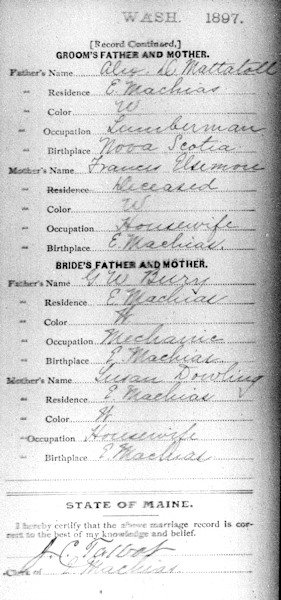 WASH. 1897.
[Record Continued.]
GROOM'S FATHER AND MOTHER.
Father's Name Alex D Mattatall
" Residence E. Machias
" Color W
" Occupation Lumberman
" Birthplace Nova Scotia
Mother's Name Frances Elsemore
" Residence Deceased
" Color W
" Occupation Housewife
" Birthplace E. Machias.
BRIDE'S FATHER AND MOTHER.
Father's Name G W Bury
" Residence E. Machias
" Color W
" Occupation Mechanic
" Birthplace E. Machias
Mother's Name Susan Dowling
" Residence E. Machias
" Color W
" Occupation Housewife
" Birthplace E. Machias
STATE OF MAINE.
I hereby certify that the above marriage record is cor-
rect to the best of my knowledge and belief.
J. C. Talbot
Clerk of Machias